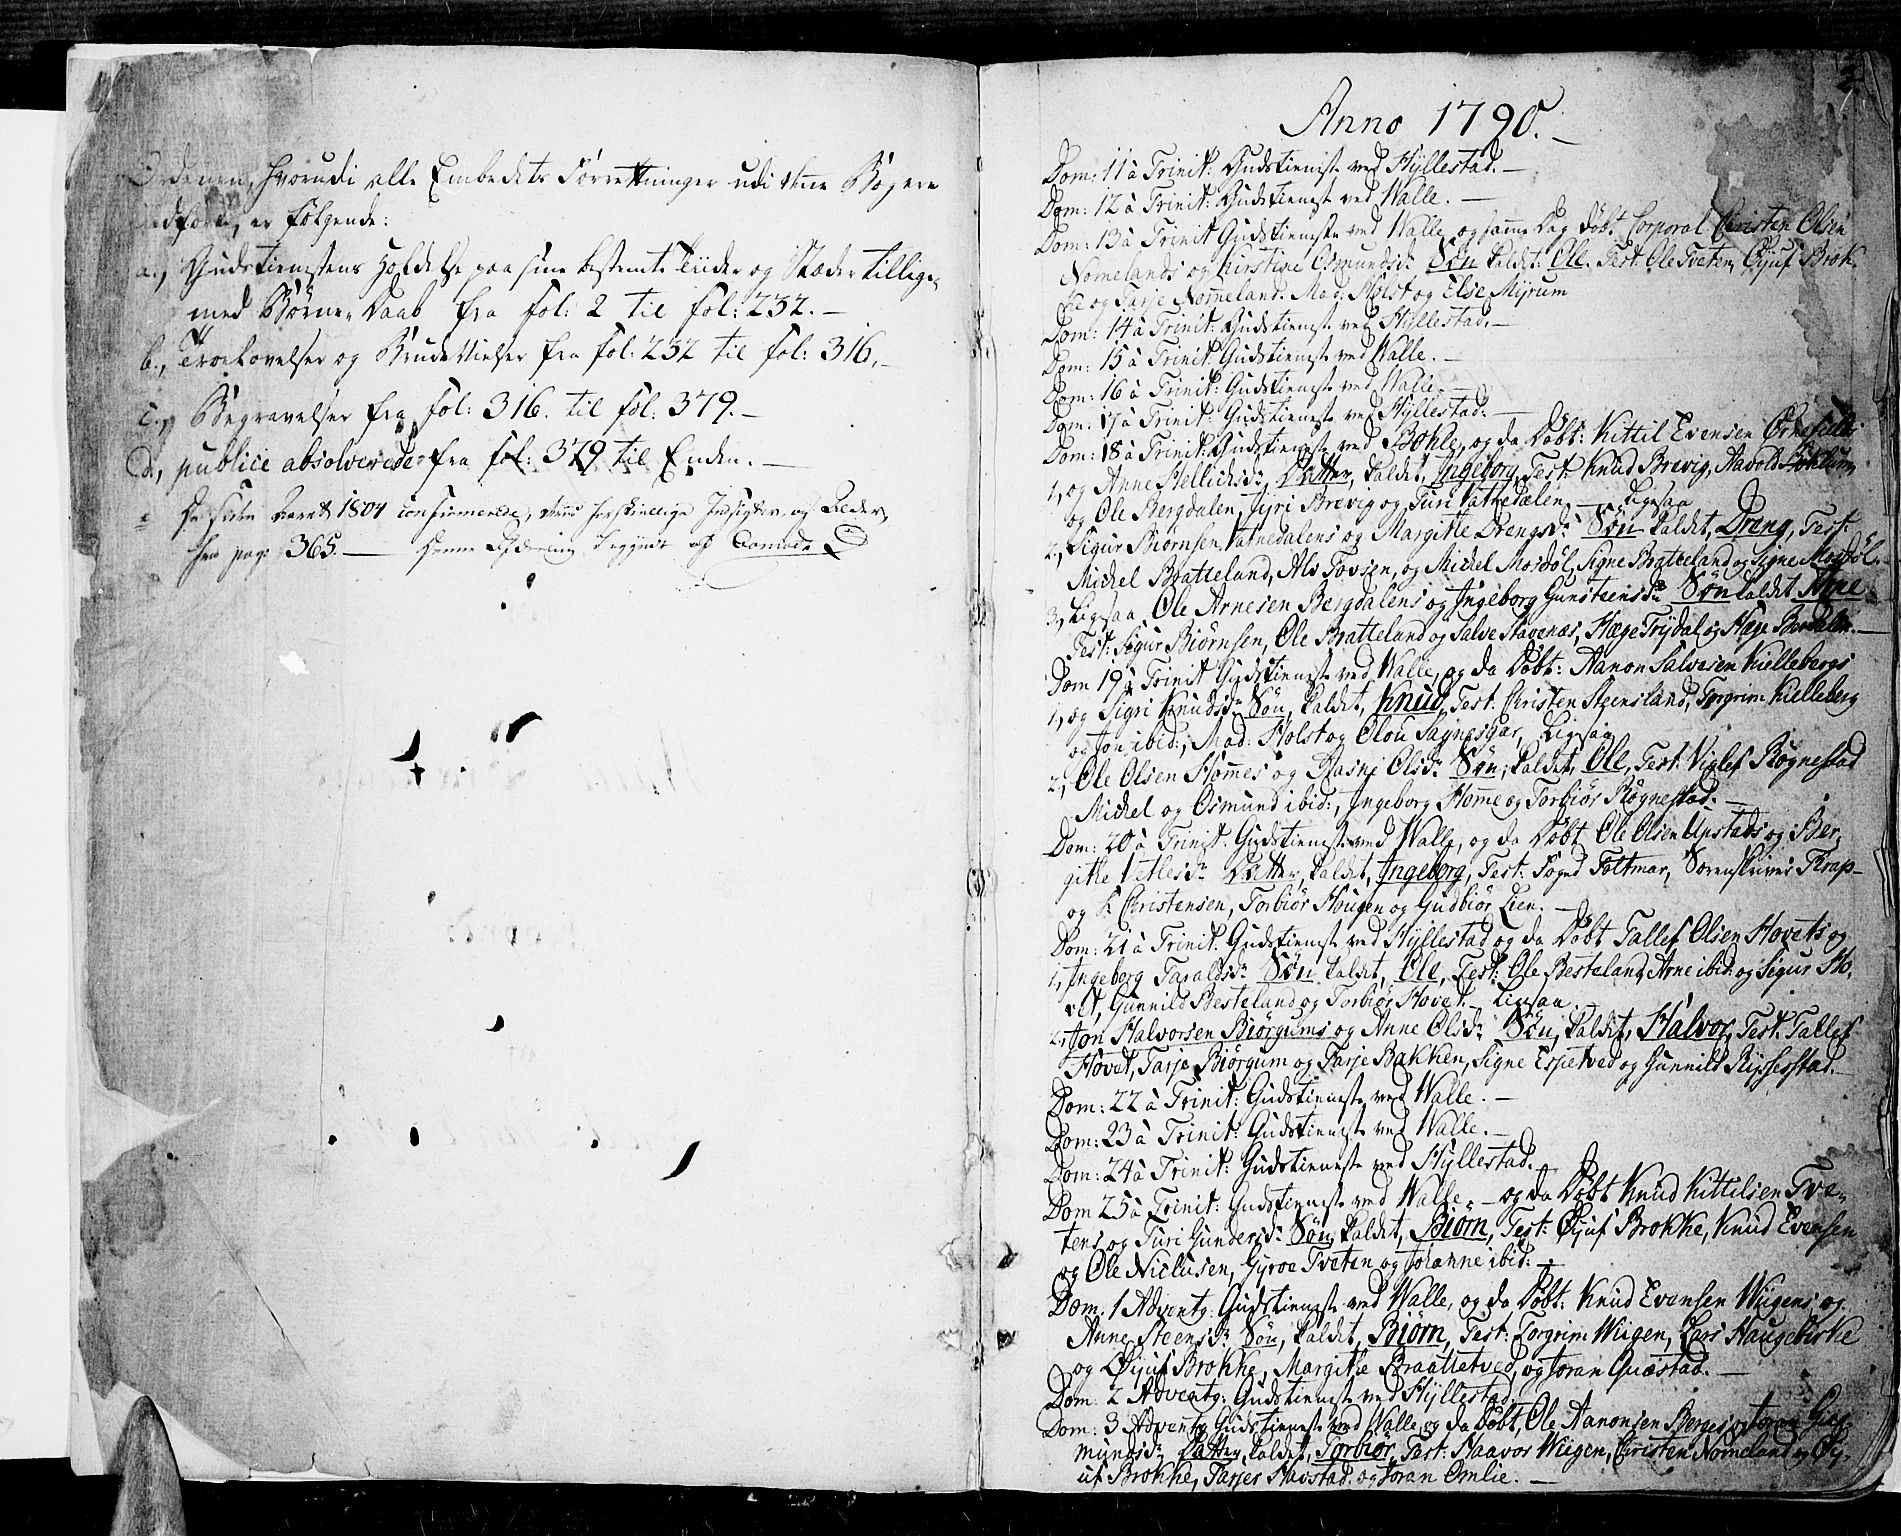 Ordenen, hvorudi alle Embedets Forrettninger udi denne Bog ere
indførte, er følgende:
a., Gudstienestens Holdelse paa sine bestemte Tiider og Stæder tillige
med Børne-Daab fra fol: 2 til fol: 232. —
b., Troelovelser og Brudevielser fra fol: 232 til fol: 316. —
c., Begravelser fra fol: 316. til fol: 379. —
d., publice absolverede fra fol: 379 til Enden. —
e De siden Aaret 1804 confirmerede, deres forskiellige Insigter og Alder,
fra pag: 365. —
2
Anno 1790. —
Dom: 11 à Trinit: Gudstieneste ved Hyllestad. —
Dom: 12 à Trinit: Gudstieneste ved Walle. —
Dom: 13 à Trinit Gudstieneste ved Walle og samme Dag Døbt Corporal Christen Olsen
Nomelands og Kirstine Osmundsdr Søn kaldet: Ole. Test: Ole Tveten, Øijuf Brok-
ke og Tarje Nomeland. Mad: Holst og Else Mijrum
Dom: 14 à Trinit: Gudstieneste ved Hyllestad. —
Dom: 15 à Trinit: Gudstieneste ved Walle. —
Dom: 16 à Trinit: Gudstieneste ved Walle. —
Dom: 17 à Trinit: Gudstieneste ved Hyllestad. —
Dom: 18 à Trinit: Gudstieneste ved Bøkle, og da Døbt: Kittil Evensen
1, og Anne Kellichsdr Datter, kaldet, Ingeborg, Test: Knud Brevig, Aavold
og Ole Bergdalen, Gyri Brevig og Turi Vatnedalen — Ligesaa
2, Sigur Biørnsen Vatnedalens og Margitte Drengsdr Søn kaldet, Dreng, Test:
Michel Bratteland, Alv Tovsen, og Michel Mosdøl, Signe Bratteland og Signe Mosdøl.
3, Ligesaa Ole Arnesen Bergdalens og Ingeborg Gunsteensdr Søn kaldet Arne
Test: Sigur Biørnsen, Ole Bratteland og Salve Stavenæs, Hæge Trydal og Hæge Berdalen. —
Dom 19 à Trinit Gudstieneste ved Walle, og da Døbt: Aanon Salvesen Kiellebergs
1, og Sigri Knudsdr Søn, kaldet, Knud, Test: Christen Steensland, Torgrim Kielleberg
og Jon ibid:, Mad: Holst og Olou Sagnesgar, Ligesaa
2, Ole Olsen Homes og Dagni Olsdr Søn, kaldet, Ole, Test: Viglef Rygnestad
Michel og Osmund ibid:, Ingeborg Home og Torbiør Rygnestad. —
Dom: 20 à Trinit: Gudstieneste ved Walle, og da Døbt Ole Olsen Upstads og Ber-
gitte Vetlesdr Datter, kaldet, Ingeborg, Test: Foged Foltmar, Sorenskriver Thrap-
og Hr Christensen, Torbiør Hougen og Gudbiør Lien. —
Dom: 21 à Trinit: Gudstieneste ved Hyllestad og da Døbt Tallef Olsen Hovets og
1, Ingeborg Taraldsdr Søn kaldet, Ole, Test: Ole Besteland, Arne ibid: og Sigur Ho-
vet, Gunnild Besteland og Torbiør Hovet. — Ligesaa
2, Jon Halvorsen Biørgums og Anne Olsdr Søn, kaldet, Halvor, Test: Tallef
Hovet, Tarje Biørgum og Tarje Bakken, Signe Espetved og Gunnild Ryssestad.
Dom: 22 à Trinit: Gudstieneste ved Walle. —
Dom: 23 à Trinit: Gudstieneste ved Walle. —
Dom: 24 à Trinit: Gudstieneste ved Hyllestad.
Dom 25 à Trinit: Gudstieneste ved Walle. — og da Døbt Knud Kittilsen Tve-
tens og Turi Gundersdr Søn, kaldet, Biørn, Test: Øijuf Brokke, Knud Evensen
og Ole Niclusen, Gyroe Tveten og Johanne ibid: —
Dom: 1 Advents: Gudstieneste ved Walle, og da Døbt: Knud Evensen Wiigens og
Anne Steensdr Søn, kaldet, Biørn, Test: Torgrim Wiigen, Lars Haugebirke
og Øijuf Brokke, Margitte Braattetved, og Joran Quæstad. —
Dom: 2 Advents: Gudstieneste ved Hyllestad.
Dom: 3 Advents Gudstieneste ved Walle og da Døbt, Ole Aanonsen Berges og Joran Gui-
mundsdr Datter, kaldet, Torbiør, Test: Haavor Wiigen, Christen Nomeland og Øij-
uf Brokke, Tarjer Havstad, og Joran Omlie. —